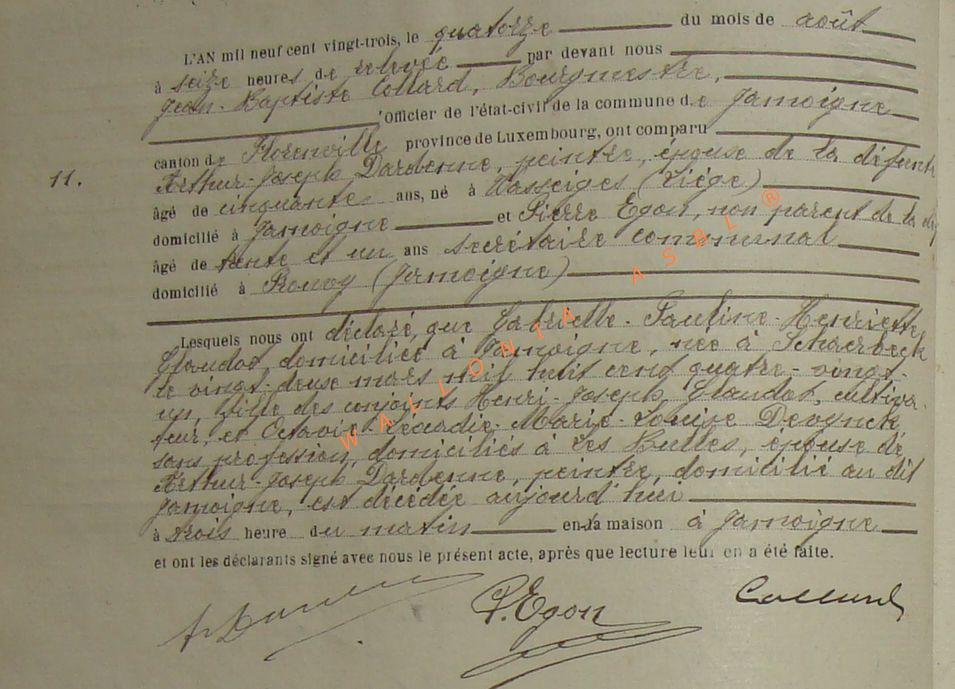 L'AN mil neuf cent vingt-trois, le quatorze du mois de août
à seize heures de relevée par devant nous
Jean-Baptiste Collard, Bourgmestre,
Officier de l'état-civil de la commune de Jamoigne
canton de Florenville province de Luxembourg, ont comparu
11. Arthur-Joseph Dardenne, peintre, épouse de la défunte
âgé de cinquante ans, né à Wasseiges (Liége)
domicilié à Jamoigne et Pierre Egon, non parent de la
âgé de trente et un ans secrétaire communal
domicilié à Prouvy (Jamoigne)
Lesquels nous ont déclaré, que Gabrielle-Pauline-Henriette
Claudot, domiciliée à Jamoigne, née à Schaerbeek
le vingt-deux mars mil huit cent quatre-vingt-
un, fille des conjoints Henri-Joseph Claudot, cultiva-
teur, et Octavie-Léocadie-Marie-Louise Devynck,
sans profession, domiciliés à Les Bulles, épouse de
Arthur-Joseph Dardenne, peintre, domicilié au dit
Jamoigne, est décédée aujourd'hui
à trois heure du matin en sa maison à Jamoigne
et ont les déclarants signé avec nous le présent acte, après que lecture leur en a été faite.
P. Egon Collard
WALLONIA ASBL ®